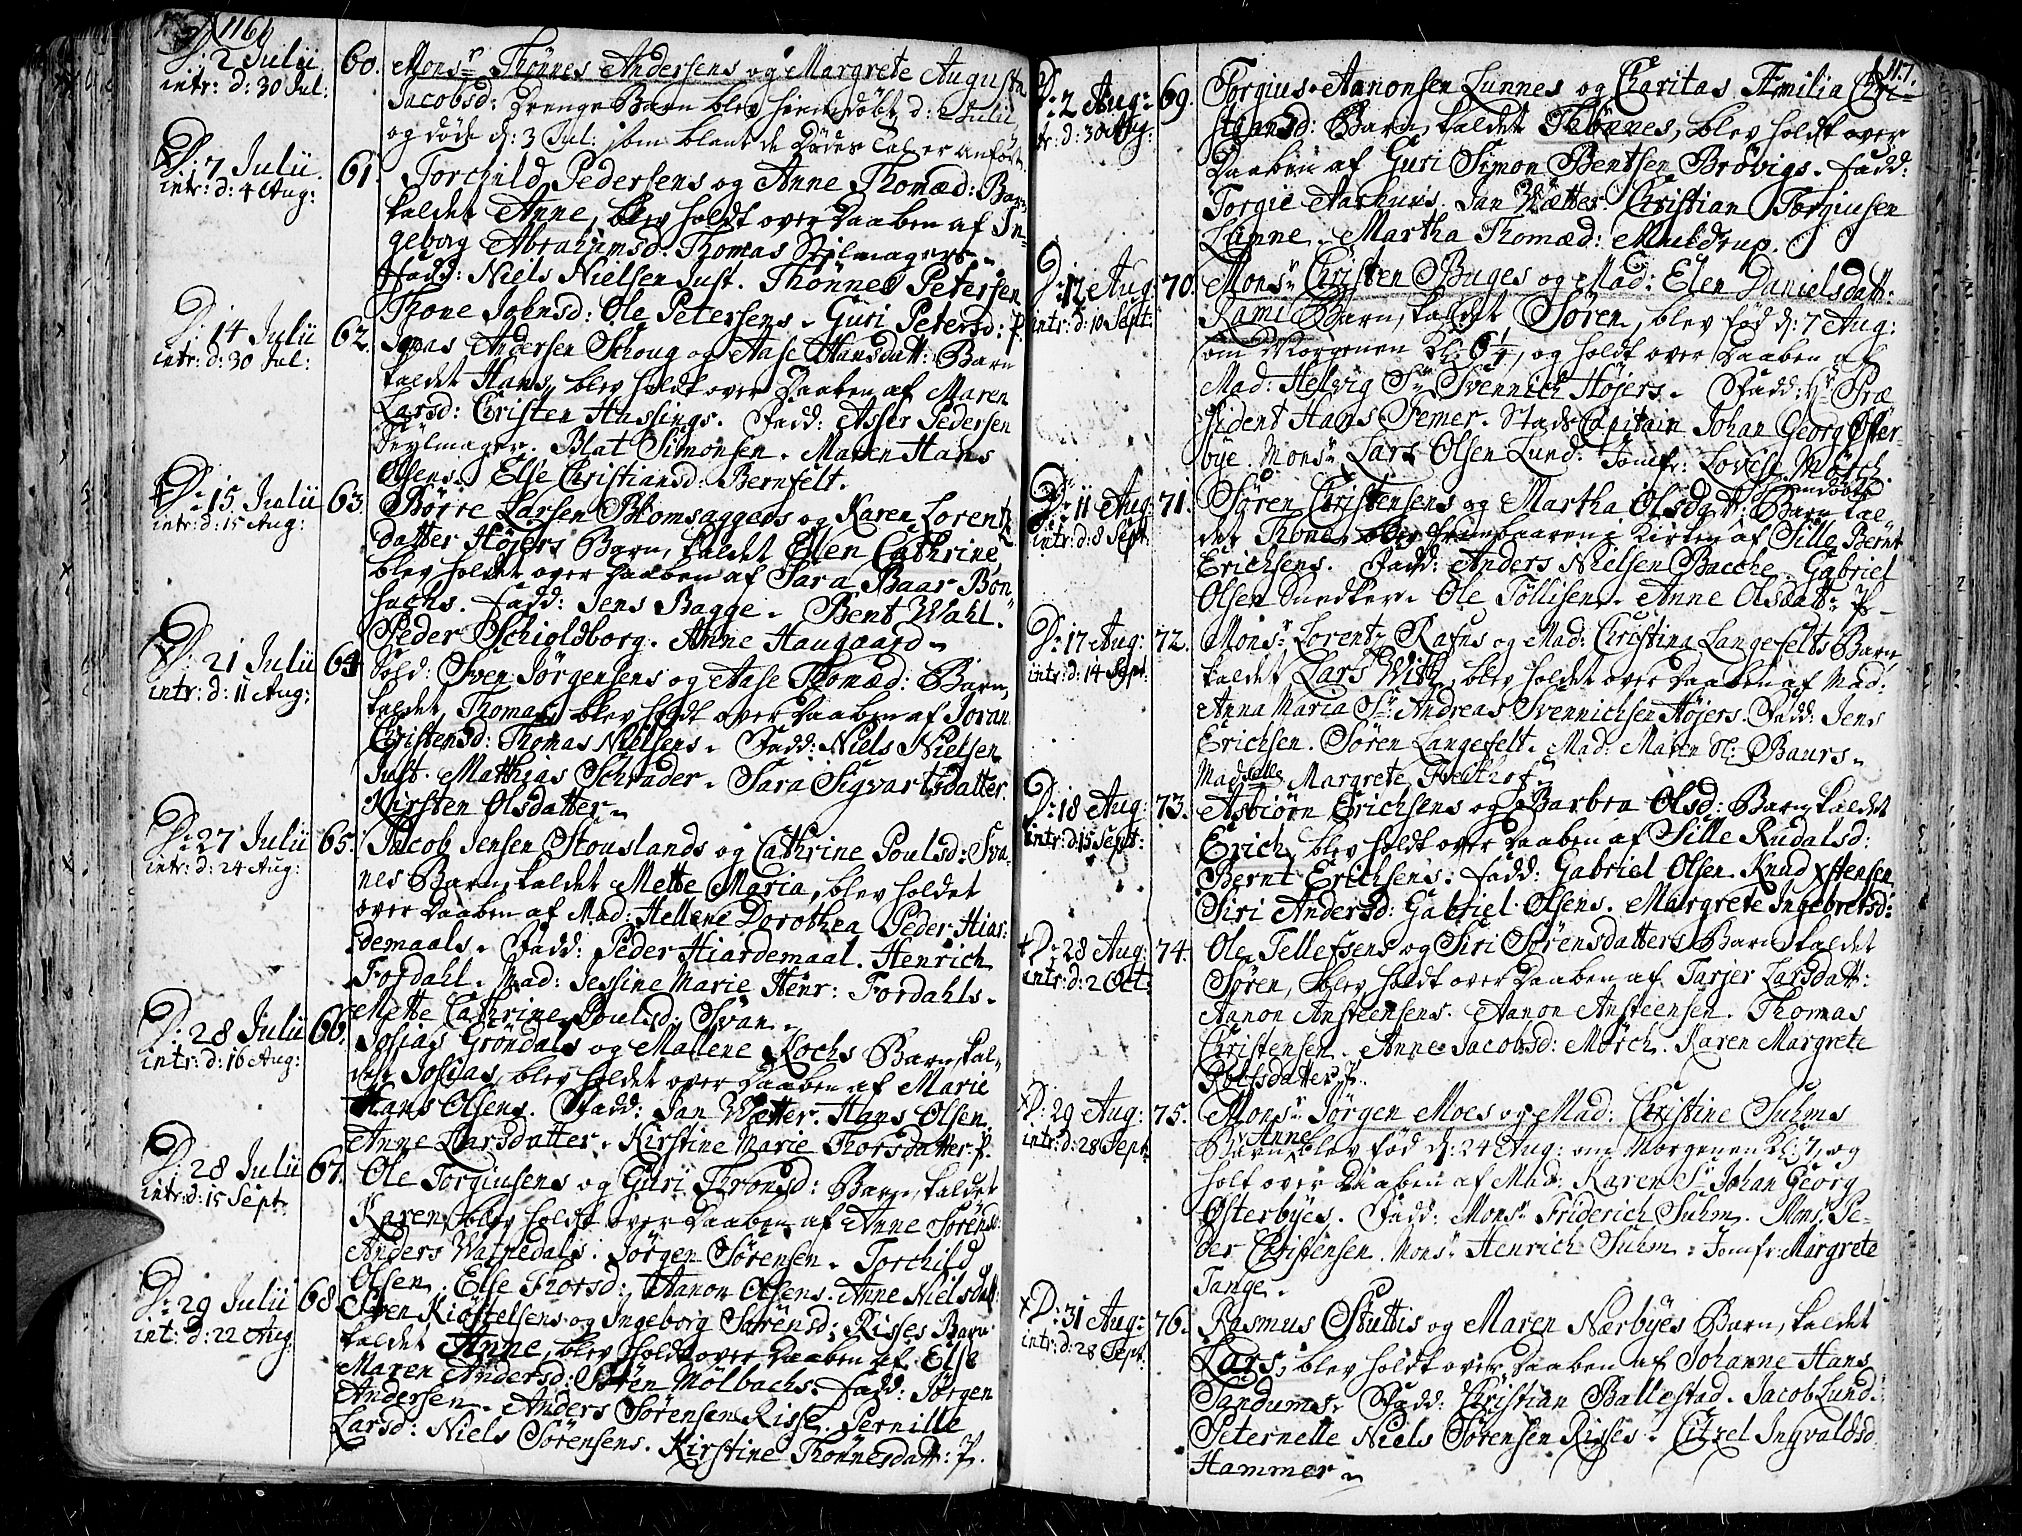 116
D: 2 Julii
intr: d: 30 Jul:
60.
Monsr Thönnes Andersens og Margrete Augusta
Jacobsd: Drenge Barn blev hiemdöbt d: Julii
og döde d: 3 Jul: som blant de Dödes Tal er anfört
D: 7 Julii
intr: d: 4 Aug:
61.
Torchild Pedersens og Anne Thomæd: Barn
kaldet Anne, blev holdt over Daaben af In-
geborg Abrahimsd: Thomas Seilmagers.
Fadd: Niels Nielsen Just. Thönnes Petersen
Thone Johnsd: Ole Petersens. Guri Petersd: P.
D: 14 Julii
intr: d: 30 Jul:
62.
Jonas Andersen Schoug og Aase Hansdatt: Barn
kaldet Hans, blev holdt over Daaben af Maren
Larsd: Christen Hussings. Fadd: Asser Pedersen
Seylmager. Blat Simonsen. Maren Hans
Olsens. Else Christiansd: Bernfelt.
D: 15 Julii
intr: d: 15 Aug:
63.
Börre Larsen Blomsaggers og Karen Lorentz
datter Höjers Barn, kaldet Elen Cathrine,
blev holdet over Daaben af Sara Baar Bon-
sachs. Fadd: Jens Bagge. Bent Wahl.
Peder Schioldborg. Anne Haugaard.
D: 21 Julii
intr: d: 11 Aug:
64
Sold: Sven Jörgensens og Aase Thomæd: Barn,
kaldet Thomas, blev holdt over Daaben af Joran
Christensd: Thomas Nielsens. Fadd: Niels Nielsen
Just. Matthias Schrader. Sara Sigvartsdatter.
Kirsten Olsdatter.
D: 27 Julii
intr: d: 24 Aug:
65.
Jacob Jensen Stouslands og Cathrine Poulsd: Sva-
nes Barn, kaldet Mette Maria, blev holdet
over Daaben af Mad: Hellene Dorothea Peder Hiar-
demaals. Fadd: Peder Hiardemaal. Henrich
Fordahl. Mad: Jessine Marie Henr: Fordahls.
Mette Cathrine Poulsd: Svan.
D: 28 Julii
intr: d: 16 Aug:
66.
Josias Gröndals og Mallene Kochs Barn, kal-
det Josias, blev holdet over Daaben af Marie
Hans Olsens. Fadd: Jan Wætter. Hans Olsen.
Anne Larsdatter. Kirstine Marie Thorsdatter. P.
D: 28 Julii
intr: d: 15 Sept:
67.
Ole Torgiusens og Guri Thronsd: Barn, kaldet
Karen, blev holdt over Daaben af Anne Sörensd:
Anders Watnedals. Jörgen Sörensen. Torchild
Olsen. Else Thorsd: Aanon Olsens. Anne Nielsdatt:
D: 29 Julii
int: d: 22 Aug
68.
Sven Kiöstelsens og Ingeborg Sörensd: Risses Barn
kaldet Anne, blev holdt over Daaben af Else
Maren Andersd: Sören Mölbachs. Fadd: Jörgen
Andersen. Anders Sörensen Risse. Pernille
Larsd: Niels Sörensens. Kirstine Thönnesdatt: P.
117.
D: 2 Aug:
intr: d: 30 Aug:
69.
Torgius Aanonsen Lunnes og Charitas Emilia Chri-
stiansd: Barn, kaldet Thönnes, blev holdt over
Daaben af Guri Simon Bentsen Brövigs. Fadd:
Torgie Aashuus. Jan Wætter. Christian Torgiusen
Lunne. Martha Thomæd: Muldrup.
D: 12 Aug:
intr: d: 10 Sept:
70.
Monsr Christen Buges og Mad: Elen Danielsdatt:
Rami Barn, kaldet Sören, blev föd d: 7 Aug:
om Morgenen Kl: 6¼, og holdt over Daaben af
Mad: Helvig Sr Svennich Höjers. Fadd: Hr Præ
sident Hans Semer. Stads Capitain Johan Georg Öster
bye. Monsr Lars Olsen Lund. Jomfr: Lovise Mörch.
D: 11 Aug:
intr: d: 8 Sept:
71.
Sören Christensens og Martha Olsdatt: Barn kal-
det Thone, blev frembaaren i Kirken af Sille Bernt
Erichsens. Fadd: Anders Nielsen Bacche. Gabriel
Olsen Snedker. Ole Töllisen. Anne Olsdatt: P.
D: 17 Aug:
intr: d: 14 Sept:
72.
Monsr Lorentz Rafns og Mad: Christina Langefelts Barn,
kaldet Lars With, blev holdet over Daaben af Mad:
Anna Maria Sr Andreas Svennichsen Höjers. Fadd: Jens
Erichsen. Sören Langefelt. Mad: Maren Sl: Baurs.
Madselle Margrete Holthof.
D: 18 Aug:
intr: d: 15 Sept:
73.
Asbiörn Erichsens og Barbra Olsd: Barn, kaldet
Erich, blev holdt over Daaben af Sille Rudalsd:
Bernt Erichsens. Fadd: Gabriel Olsen. Knud Jensen
Siri Andersd: Gabriel Olsens. Margrete Ingebretsd:
D: 28 Aug:
intr: d: 2 Oct:
74.
Ole Tellefsens og Siri Sörensdatters Barn, kaldet
Sören, blev holdt over Daaben af Tarjer Larsdatt:
Aanon Ansteensens. Aanon Ansteensen. Thomas
Christensen. Anne Jacobsd: Mörch. Karen Margrete
Rolfsdatter P.
D: 29 Aug:
intr: d: 28 Sept:
75.
Monsr Jörgen Moes og Mad: Christine Suhms
Barn, Anne blev föd d: 24 Aug: om Morgenen Kl: 7, og
holt over Daaben af Mad: Karen Sr Johan Georg
Österbyes. Fadd: Monsr Friderich Suhm. Monsr Pe-
der Christensen. Monsr Henrich Suhm. Jomfr: Margrete
Tange.
D: 31 Aug:
intr: d: 28 Sept:
76.
Rasmus Stuttis og Maren Nærbyes Barn, kaldet
Lars, blev holdt over Daaben af Johanne Hans
Sandums. Fadd: Christian Ballestad. Jacob Lund.
Peternelle Niels Sörensen Risses. Citzel Ingvaldsd
Hammer.